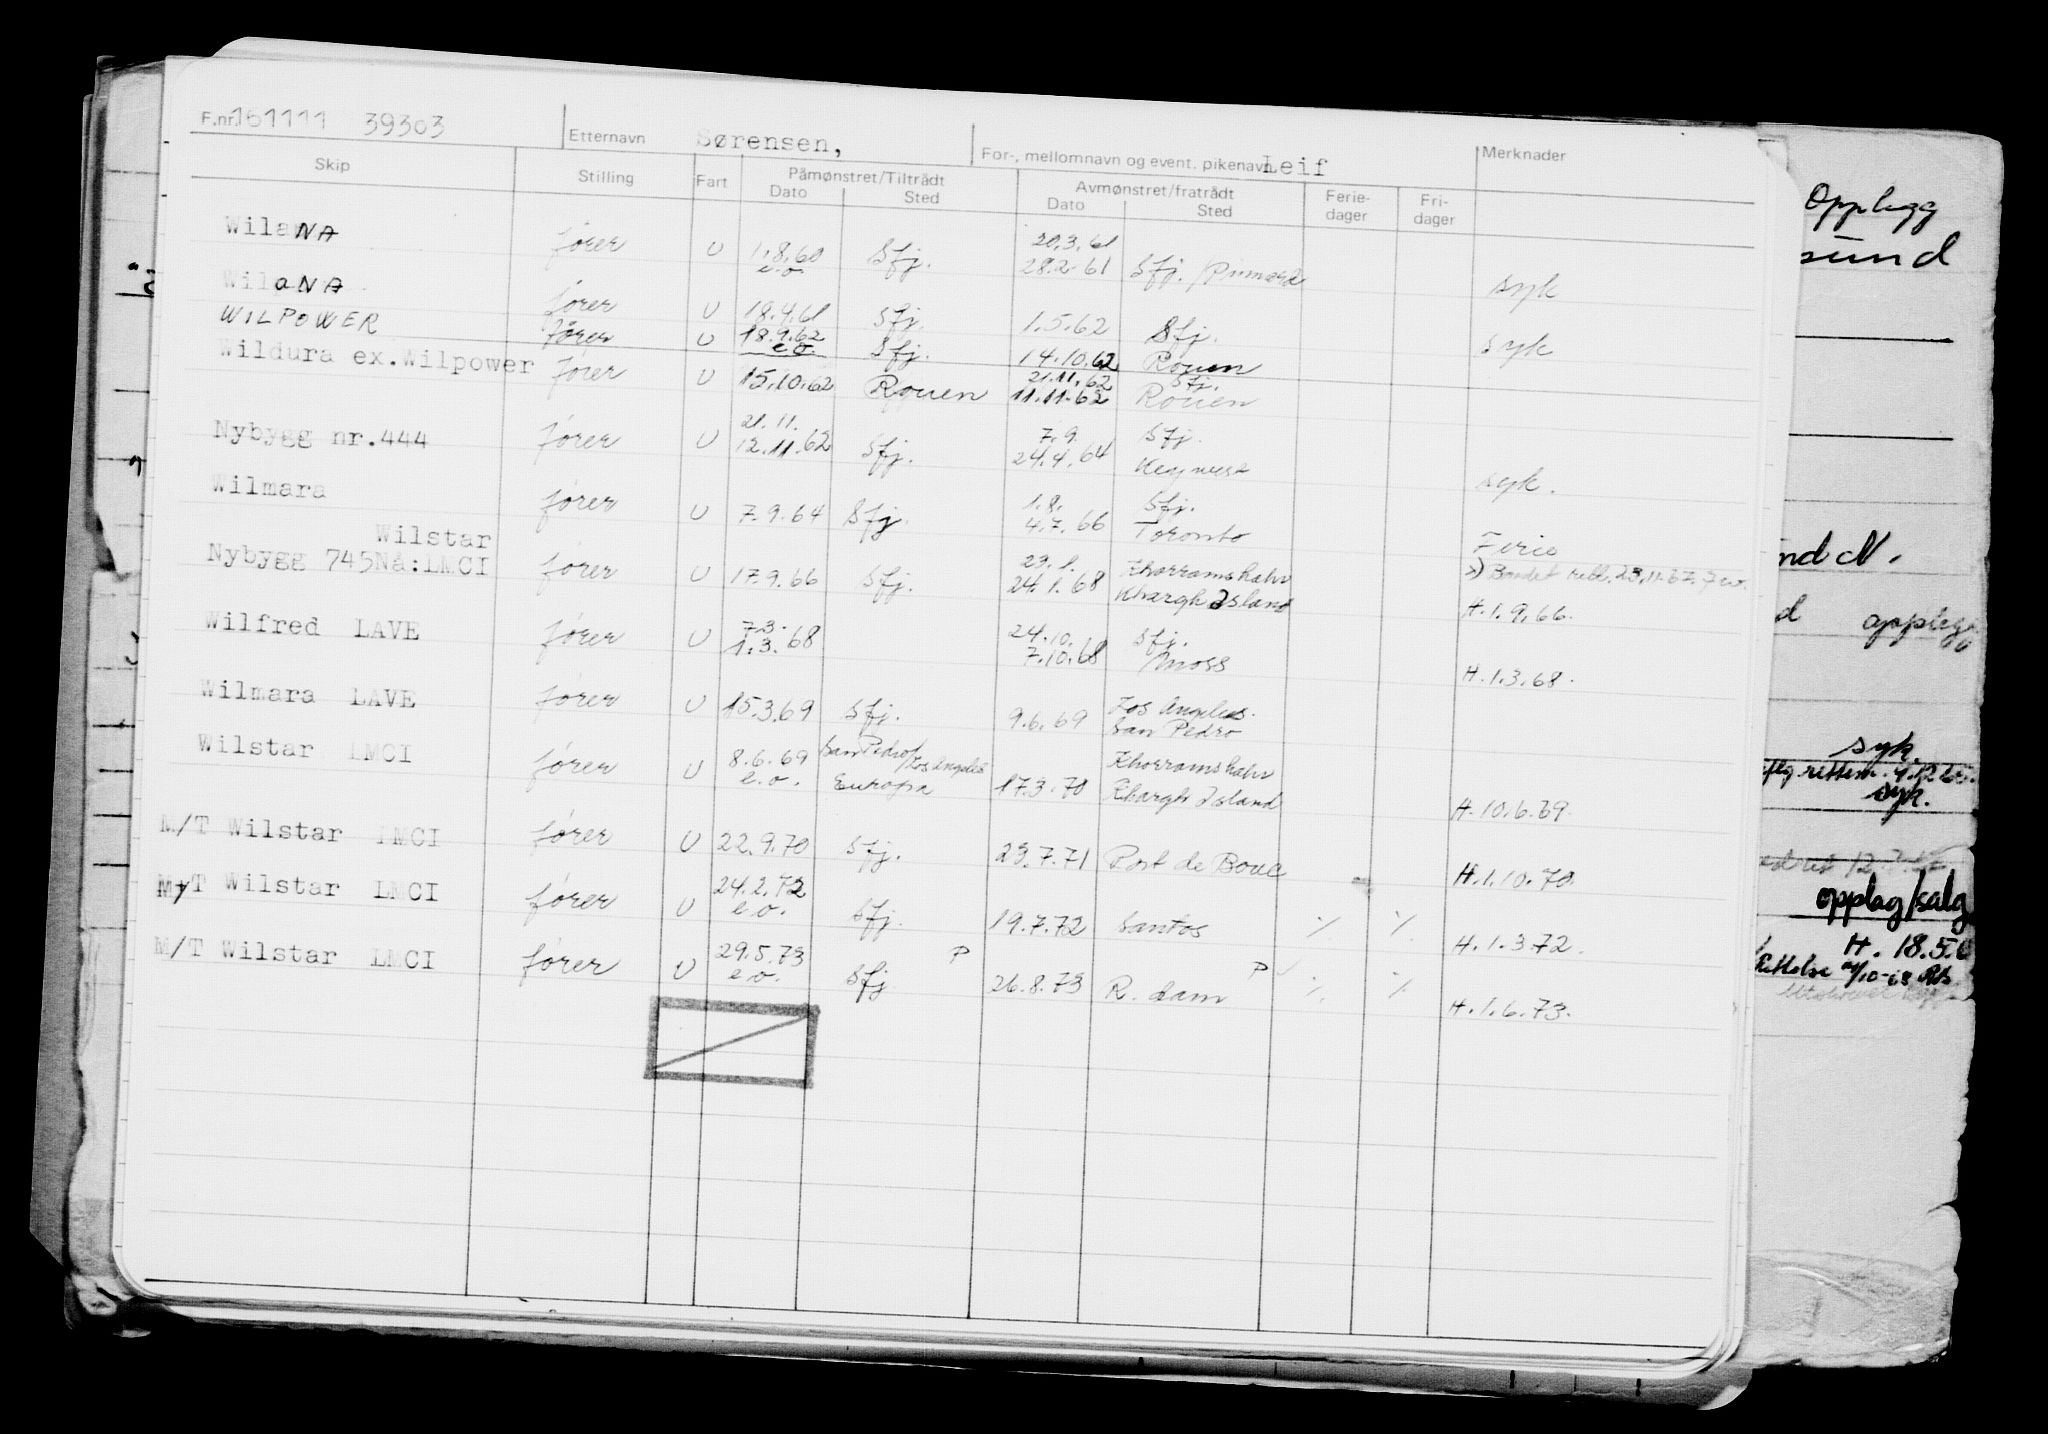 F.nr. 161111 39303 Etternavn Sørensen, For-, mellomnavn og event. pikenavn Leif Merknader
Skip Stilling Fart Påmønstret/Tiltrådt Avmønstret/fratrådt Ferie- Fri-
Dato Sted Dato Sted dager dager
20.3.61
WilaNA fører U 1.8.60 Sfj. 28.2.61 Sfj. / syk
e.o.
WilaNA fører U 18.4.61 Sfj. 1.5.62 Sfj. syk
WILPOWER fører U 18.9.62 Sfj. 14.10.62 Rouen
e.o. 21.11.62 Sfj.
Wildura ex.Wilpower fører U 15.10.62 Rouen 11.11.62 Rouen
21.11. 7.9. Sfj.
Nybygg nr.444 fører U 12.11.62 Sfj. 24.4.64 Key west syk.
1.8. Sfj.
Wilmara fører U 7.9.64 Sfj. 4.7.66 Toronto Ferie
Wilstar 29.1. Khorramshahr
Nybygg 745Nå:LMCI fører U 17.9.66 Sfj. 24.1.68 Khargh Island H.1.9.66.
7.3. 24.10. Sfj.
Wilfred LAVE fører U 1.3.68 7.10.68 Moss H.1.3.68.
Los Angeles.
Wilmara LAVE fører U 15.3.69 Sfj. 9.6.69 San Pedro
8.6.69 San Pedro/Los Angeles Khorramshahr
Wilstar LMCI fører U e.o. Europa 17.3.70 Khargh Island H.10.6.69.
M/T Wilstar LMCI fører U 22.9.70 Sfj. 29.7.71 Port de Bouc H.1.10.70.
24.2.72
M/T Wilstar LMCI fører U e.o. Sfj. 19.7.72 Santos ٪ ٪ H.1.3.72.
29.5.73 P P
M/T Wilstar LMCI fører U e.o. Sfj 26.8.73 R.dam ٪ ٪ H.1.6.73.
Opplegg
sund
nd N.
d opplegg
syk.
syk.
opplag/salg
H. 18.5.6